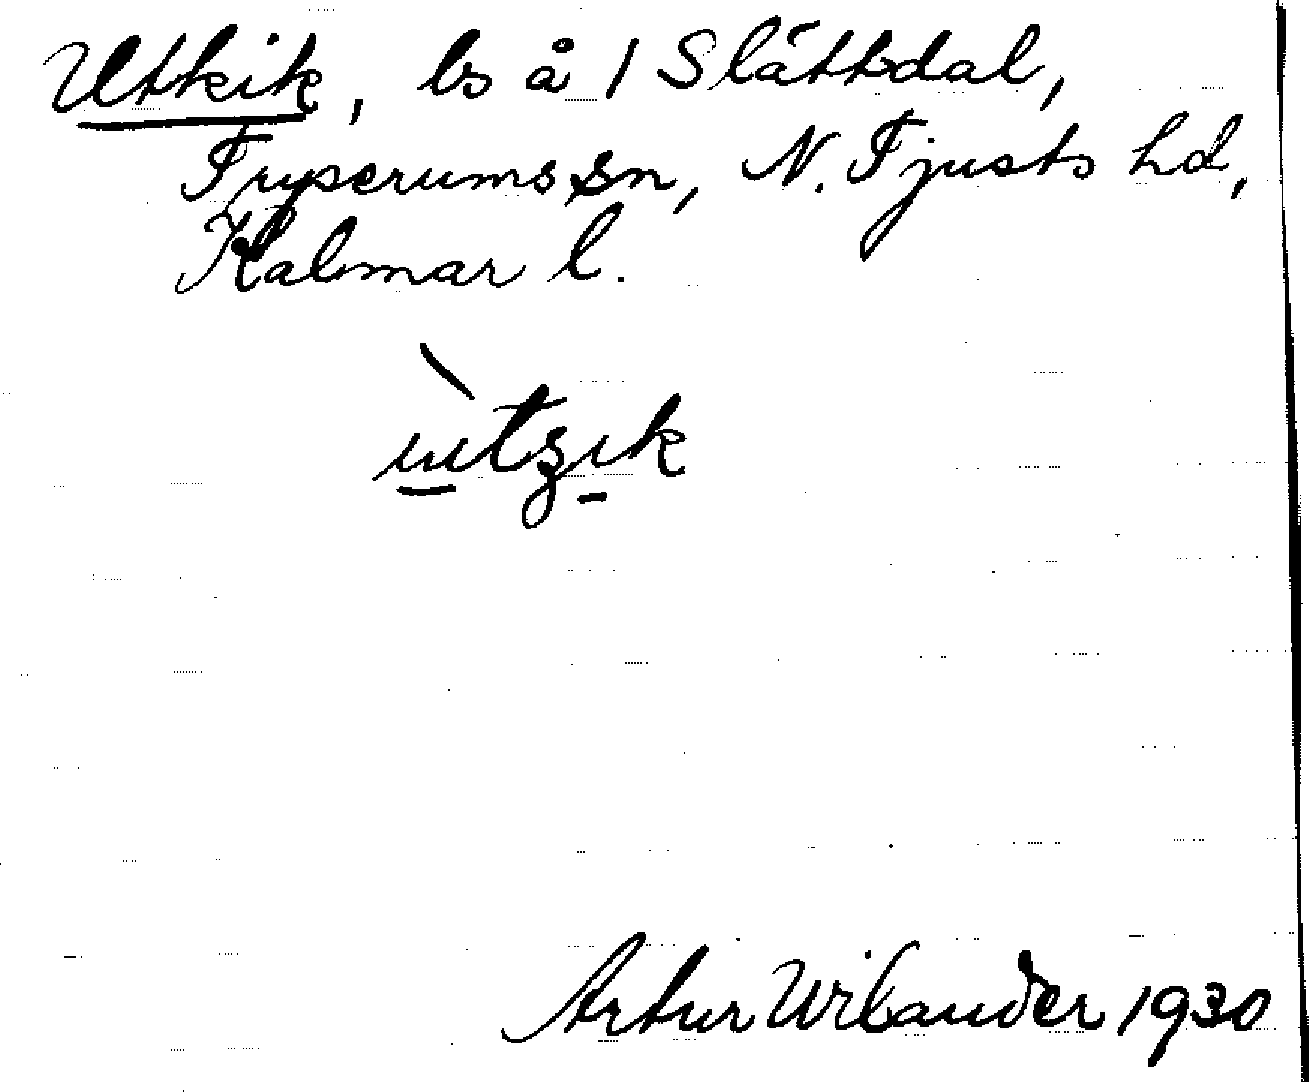 Utkik, ls å 1 Slättdal,
Tryserums sn, N. Tjusts hd,
Kalmar l.
Artur Wilander 1930